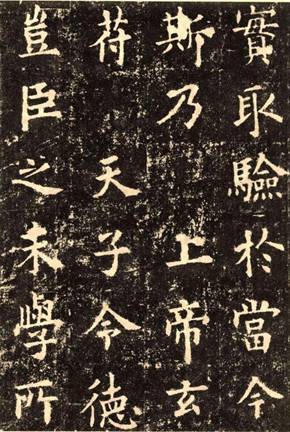 實取驗於當今
斯乃 上帝玄
符 天子令德
豈臣之末學所